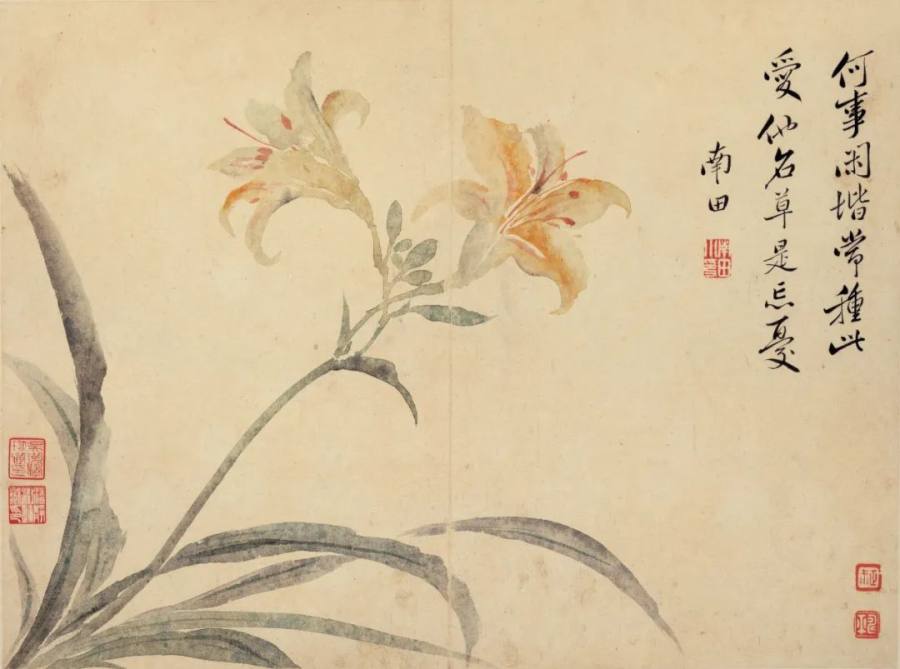 何事閑堦常種此
愛他名草是忘憂
南田